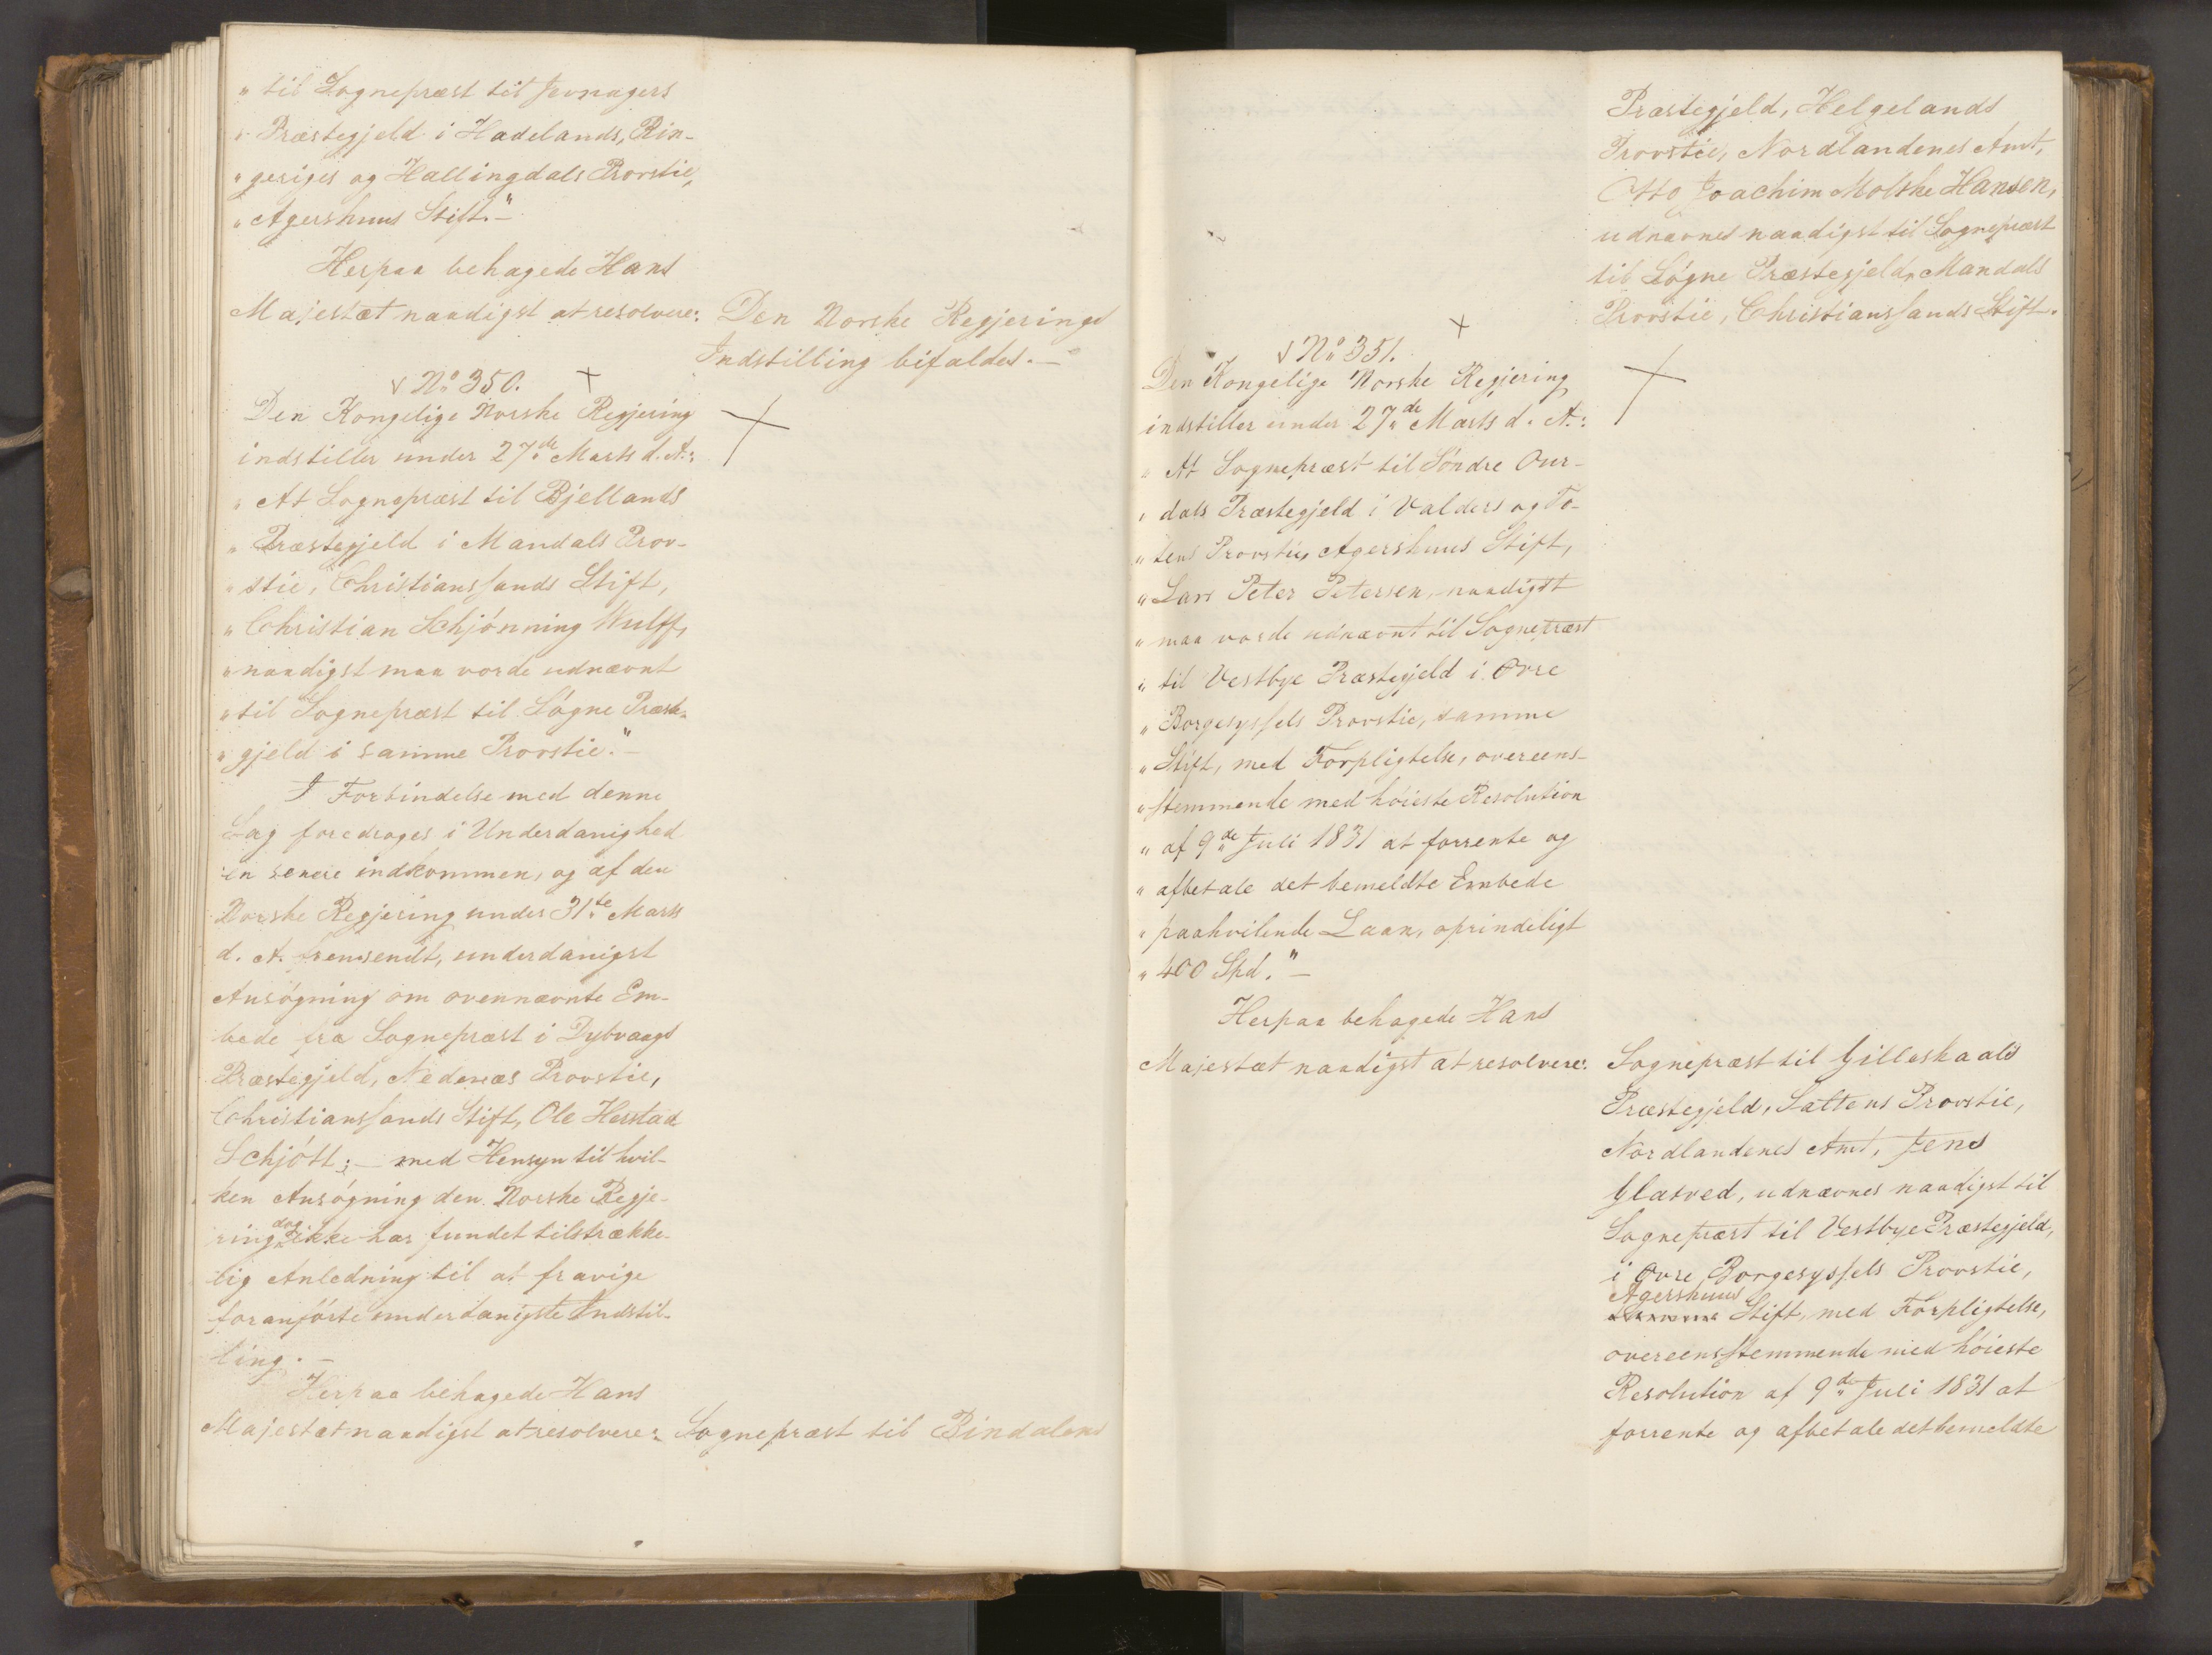 „ til Sognepræst til Jevnagers
„ Præstegjeld i Hadelands, Rin-
„ geriges og Hallingdals Provstie,
„ Agershuus Stift."-
Herpaa behagede Hans
Majestæt naadigst at resolvere:
Den Norske Regjerings
Indstilling bifaldes.-
No 350.
Den Kongelige Norske Regjering
indstiller under 27de Marts d. A.:
„ At Sognepræst til Bjellands
„ Præstegjeld i Mandals Prov-
„ stie, Christianssands Stift,
„ Christian Schjönning Wulff,
„ naadigst maa vorde udnævnt
„ til Sognepræst til Sögne Præste-
„ gjeld i samme Provstie."-
I Forbindelse med denne
Sag foredroges i Underdanighed
en senere indkommen, og af den
Norske Regjering under 31te Marts
d. A. fremsendt, underdanigst
Ansögning om ovennævnte Em-
bede fra Sognepræst i Dybvaags
Præstegjeld, Nedenæs Provstie,
Christianssands Stift, Ole Herstad
Schjött;- med Hensyn til hvil-
ken Ansögning den Norske Regje-
ring dog ikke har fundet tilstrække-
lig Anledning til at fravige
foranförte underdanigste Indstil-
ling.-
Herpaa behagede Hans
Majestæt naadigst at resolvere:
Sognepræst til Bindalens
Præstegjeld, Helgelands
Provstie, Nordlandenes Amt,
Otto Joachim Moltke Hansen,
udnævnes naadigst til Sognepræst
til Sögne Præstegjeld, Mandals
Provstie, Christianssands Stift.
No 351.
Den Kongelige Norske Regjering
indstiller under 27de Marts d. A.:
„ At Sognepræst til Söndre Our-
„ dals Præstegjeld i Valders og To-
„ tens Provstie, Agershuus Stift,
„ Lars Peter Petersen, naadigst
„ maa vorde udnævnt til Sognepræst
„ til Vestbye Præstegjeld i Övre
„ Borgesyssels Provstie, samme
„ Stift, med Forpligtelse, overeens-
„ stemmende med höieste Resolution
„ af 9de Juli 1831 at forrente og
„ afbetale det bemeldte Embede
„ paahvilende Laan, oprindeligt
„ 400 Spd."-
Herpaa behagede Hans
Majestæt naadigst at resolvere:
Sognepræst til Gilleskaals
Præstegjeld, Saltens Provstie,
Nordlandenes Amt, Jens
Glasved, udnævnes naadigst til
Sognepræst til Vestbye Præstegjeld,
i Övre Borgesyssels Provstie,
Agershuus
Stift, med Forpligtelse,
overeensstemmende med höieste
Resolution af 9de Juli 1831 at
forrente og afbetale det bemeldte